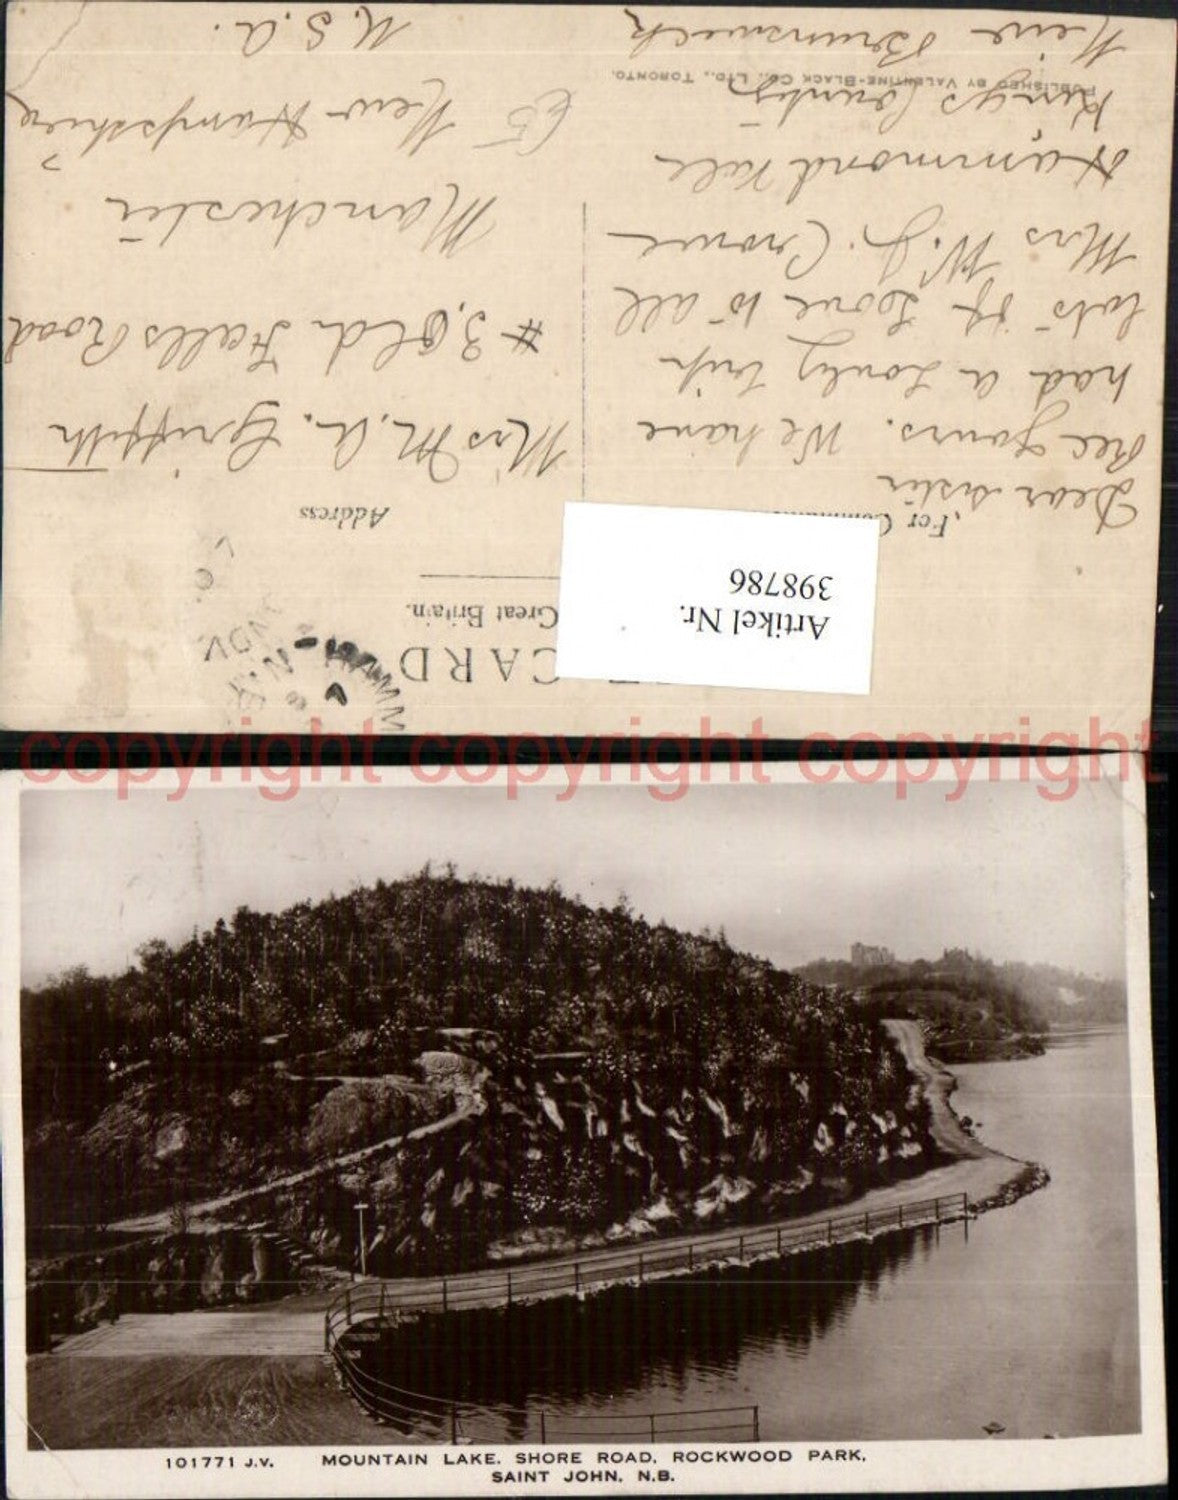 POST CARD
Great Britain.
Artikel Nr.
398786
For
Address
Dear sister
Rec yours. We have
had a Lovly trip
lots of Love to all
Mrs W.J. Crowe
Hammond Vale
Kings County
New Brunswick
PUBLISHED BY VALENTINE-BLACK CO., LTD., TORONTO.
Mrs M.A. Griffith
#3, Old Falls Road
Manchester
New Hampshire
U.S.A.
copyright copyright copyright
101771 J.V. MOUNTAIN LAKE, SHORE ROAD, ROCKWOOD PARK,
SAINT JOHN, N.B.